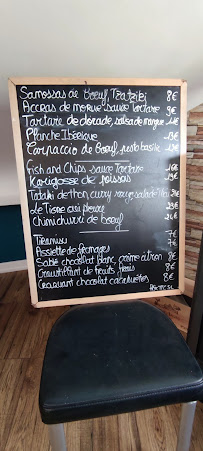 Samossas de Boeuf, Tzatziki 8€
Accras de morue sauce Tartare 9€
Tartare de dorade, salsa de mangue 14€
Planche Ibérique 13€
Carpaccio de Boeuf, pesto basilic 13€
Fish and Chips sauce Tartare 16€
de poisson 19€
Tataki de thon curry rouge salade
Le Tigre qui pleure 23€
Chimichurri de boeuf 24€
Tiramisu 7€
Assiette de fromages 7€
Sablé chocolat blanc, crème citron 8€
Croustillant de fruits frais 8€
Croquant chocolat cacahuètes 8€